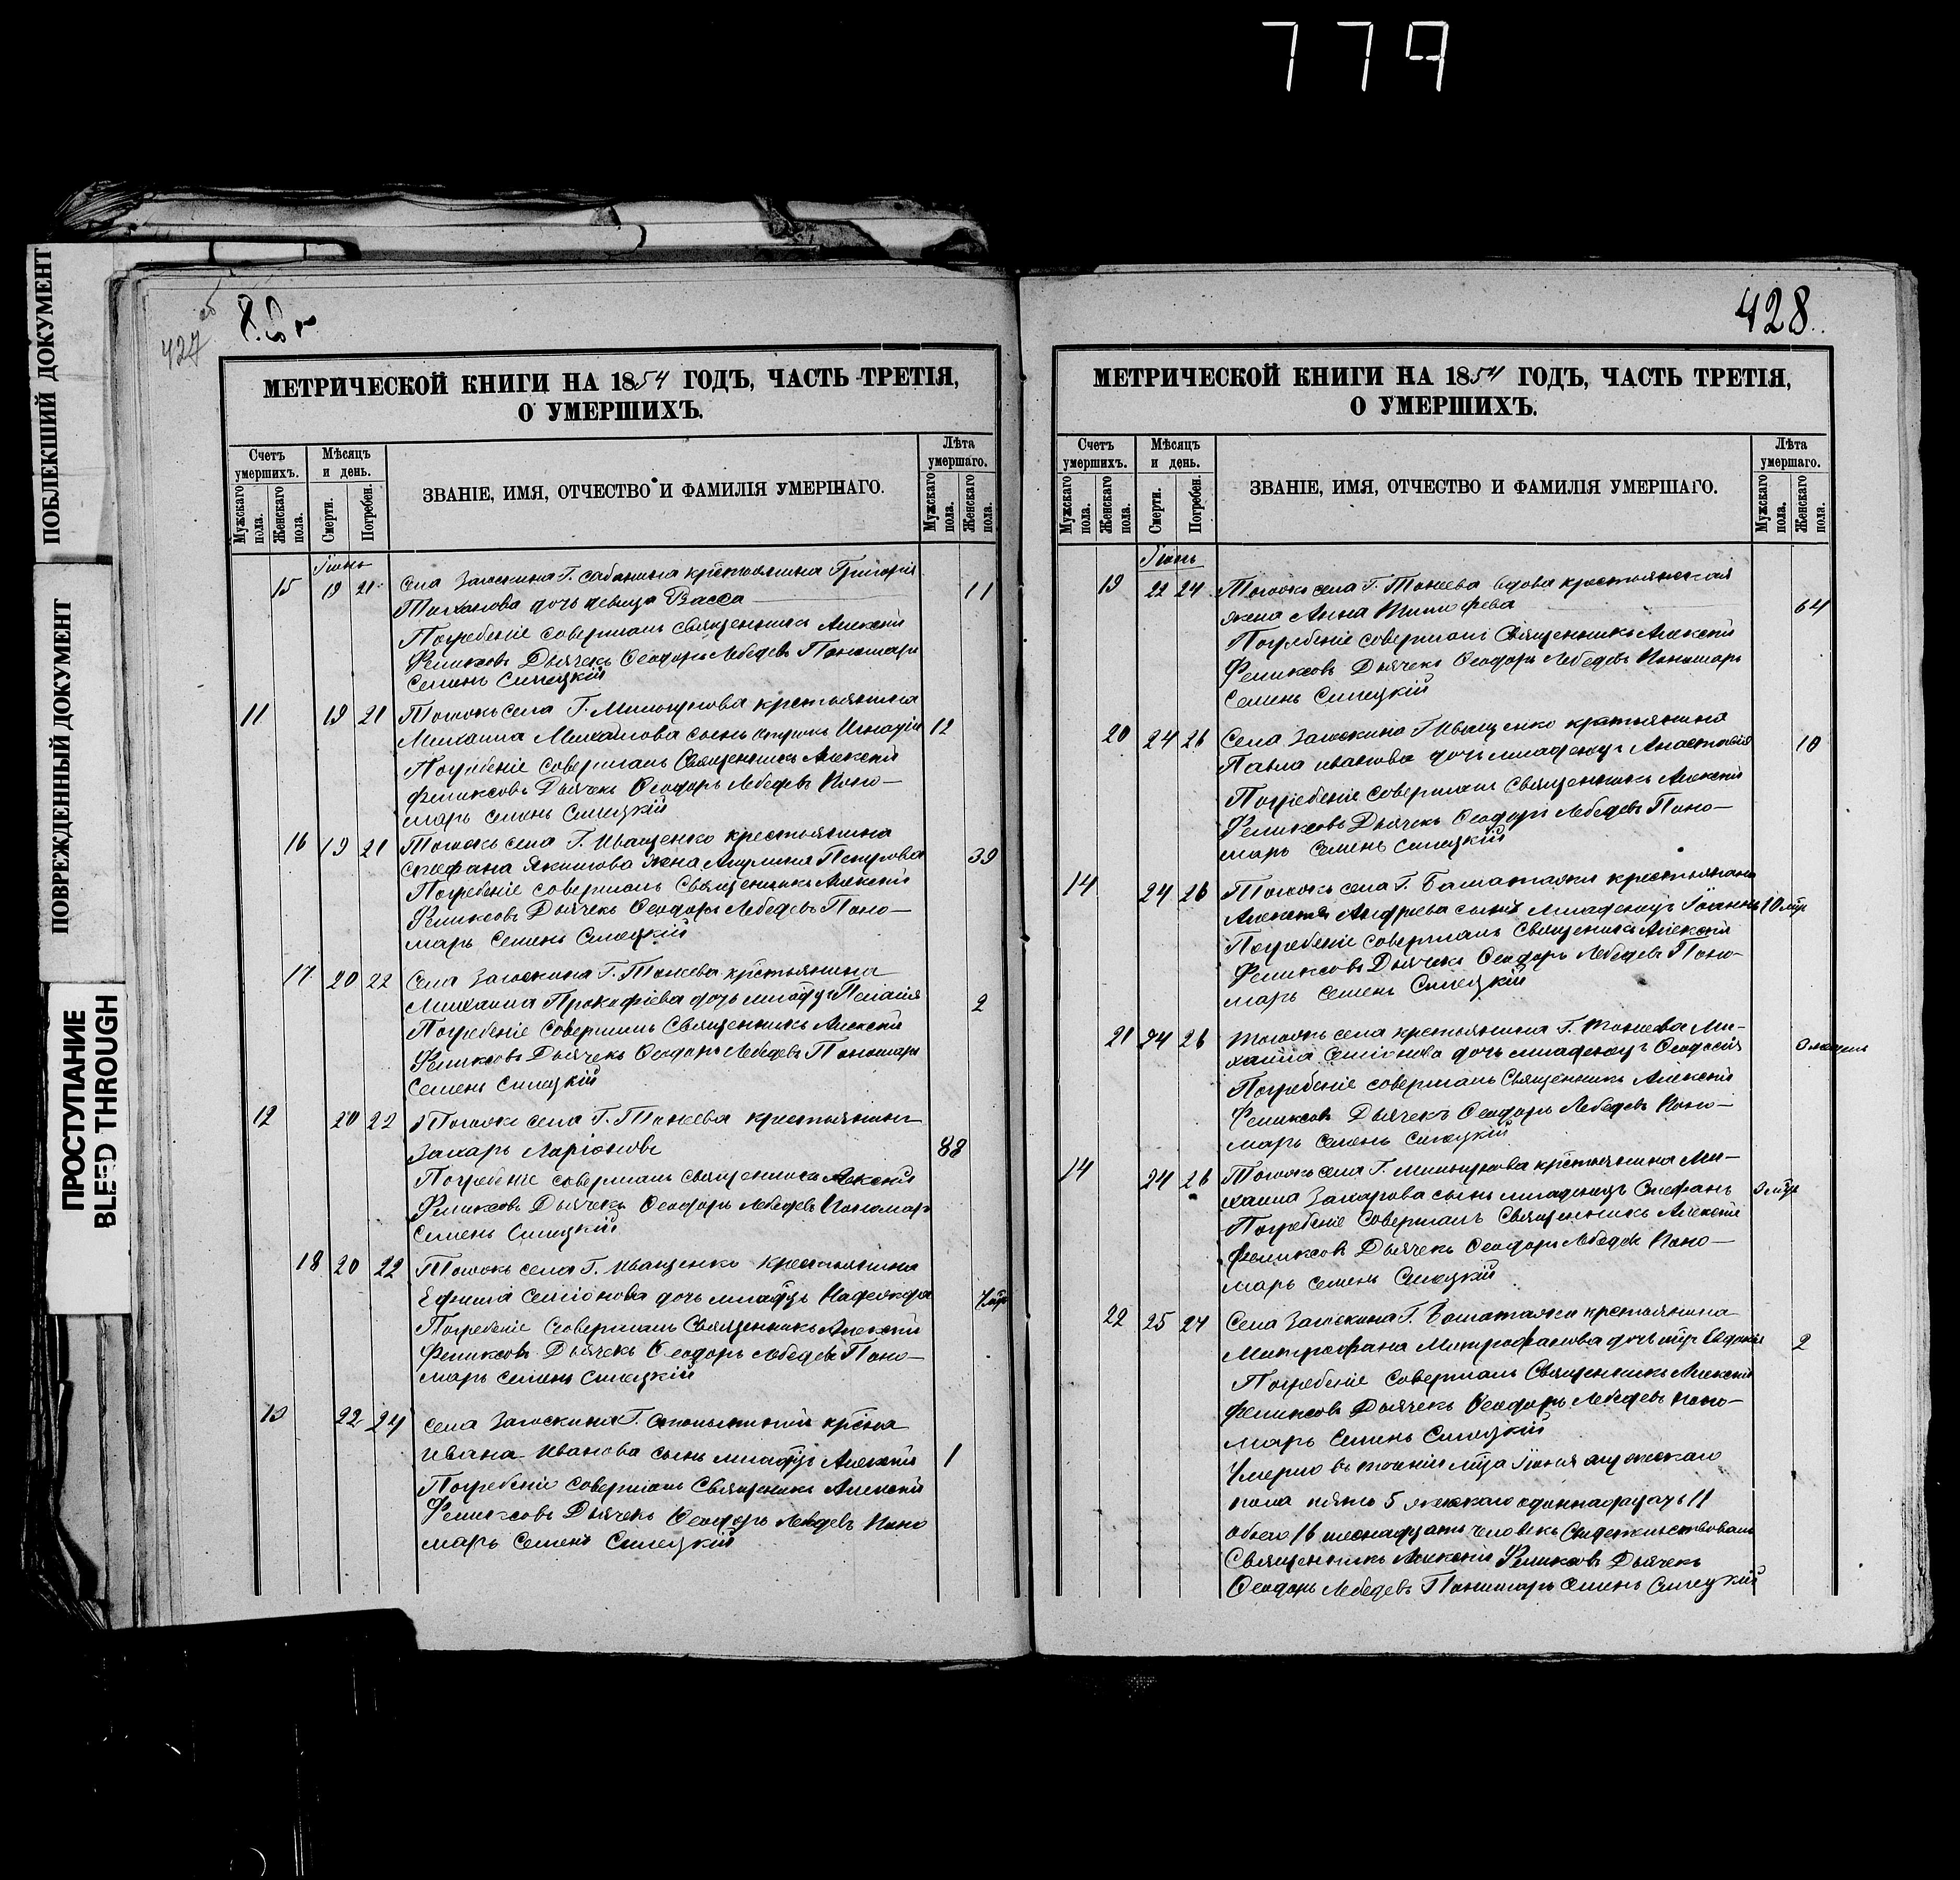 779
ПОБЛЕКШИЙ ДОКУМЕНТ
ПОВРЕЖДЕННЫЙ ДОКУМЕНТ
ПРОСТУПАНИЕ
BLEED THROUGH
427 об
МЕТРИЧЕСКОЙ КНИГИ НА 1854 ГОДЪ, ЧАСТЬ ТРЕТІЯ,
О УМЕРШИХЪ.
Счетъ умершихъ.
Мѣсяцъ и день.
ЗВАНІЕ, ИМЯ, ОТЧЕСТВО И ФАМИЛІЯ УМЕРШАГО.
Лѣта умершаго.
Мужскаго пола.
Женскаго пола.
Смерти.
Погребен.
Мужскаго пола.
Женскаго пола.
Іюнь
15 19 21 Села Загоскина Г. Сабанина крестьянина Григорія 11
дочь девица Васса
Погребеніе совершалъ Священникъ Алексій
Феликсовъ Дьячекъ Ѳеодоръ Лебедевъ Пономарь
Семенъ Силецкій
11 19 21 Тогожъ села Г. крестьянина
Михаила Михайлова сынъ отрокъ Игнатій 12
Погребеніе совершалъ Священникъ Алексій
Феликсовъ Дьячекъ Ѳеодоръ Лебедевъ Поно-
марь Семенъ Силецкій
16 19 21 Тогожъ села Г. Иващенко крестьянина
Стефана Якимова жена Акулина Петрова 39
Погребеніе совершалъ Священникъ Алексій
Феликсовъ Дьячекъ Ѳеодоръ Лебедевъ Поно-
марь Семенъ Силецкій
17 20 22 Села Загоскина Г. Танеева крестьянина
Михаила Прокофіева дочь млад҃ц Пелагія 2
Погребеніе совершалъ Священникъ Алексій
Феликсовъ Дьячекъ Ѳеодоръ Лебедевъ Пономарь
Семенъ Силецкій
12 20 22 Тогожъ села Г. Танеева крестьянинъ
Захаръ Ларіоновъ 88
Погребеніе совершалъ Священникъ Алексій
Феликсовъ Дьячекъ Ѳеодоръ Лебедевъ Пономарь
Семенъ Силецкій
18 20 22 Тогожъ села Г. Иващенко крестьянина
Ефима Семіонова дочь
Погребеніе совершалъ Священникъ Алексій
Феликсовъ Дьячекъ Ѳеодоръ Лебедевъ Поно-
марь Семенъ Силецкій
13 22 24 Села Загоскина Г.
Ивана Иванова сынъ Алексій 1
Погребеніе совершалъ Священникъ Алексій
Феликсовъ Дьячекъ Ѳеодоръ Лебедевъ Поно
марь Семенъ Силецкій
428
МЕТРИЧЕСКОЙ КНИГИ НА 1854 ГОДЪ, ЧАСТЬ ТРЕТІЯ,
О УМЕРШИХЪ.
Счетъ умершихъ.
Мѣсяцъ и день.
ЗВАНІЕ, ИМЯ, ОТЧЕСТВО И ФАМИЛІЯ УМЕРШАГО.
Лѣта умершаго.
Мужскаго пола.
Женскаго пола.
Смерти.
Погребен.
Мужскаго пола.
Женскаго пола.
Іюнь
19 22 24 Тогожъ села Г. Танеева вдова крестьянская
жена Анна Тимофеева 64
Погребеніе совершалъ Священникъ Алексій
Феликсовъ Дьячекъ Ѳеодоръ Лебедевъ Пономарь
Семенъ Силецкій
20 24 26 Села Загоскина Г. Иващенко крестьянина
Павла Иванова дочь младенецъ Анастасія 10
Погребеніе совершалъ Священникъ Алексій
Феликсовъ Дьячекъ Ѳеодоръ Лебедевъ Поно-
марь Семенъ Силецкій
14 24 26 Тогожъ села Г. крестьянина
Алексія Андреева сынъ младенецъ Іоаннъ 10
Погребеніе совершалъ Священникъ Алексій
Феликсовъ Дьячекъ Ѳеодоръ Лебедевъ Поно-
марь Семенъ Силецкій
21 24 26 Тогожъ села крестьянина Г. Танеева Ми-
хаила Семіонова дочь младенецъ Ѳеодосія
Погребеніе совершалъ Священникъ Алексій
Феликсовъ Дьячекъ Ѳеодоръ Лебедевъ Поно-
марь Семенъ Силецкій
14 24 26 Тогожъ села Г. крестьянина Ми-
хаила Захарова сынъ младенецъ Стефанъ
Погребеніе совершалъ Священникъ Алексій
Феликсовъ Дьячекъ Ѳеодоръ Лебедевъ Поно-
марь Семенъ Силецкій
22 25 27 Села Загоскина Г. крестьянина
Митрофана Митрофанова дочь 2
Погребеніе совершалъ Священникъ Алексій
Феликсовъ Дьячекъ Ѳеодоръ Лебедевъ Поно-
марь Семенъ Силецкій
Умерло въ теченіи Іюня мужескаго
пола пять 5 женскаго одиннадцать 11
обоего 16 шеснадцать человекъ Свидетельствовали
Священникъ Алексій Феликсовъ Дьячекъ
Ѳеодоръ Лебедевъ Пономарь Семенъ Силецкій